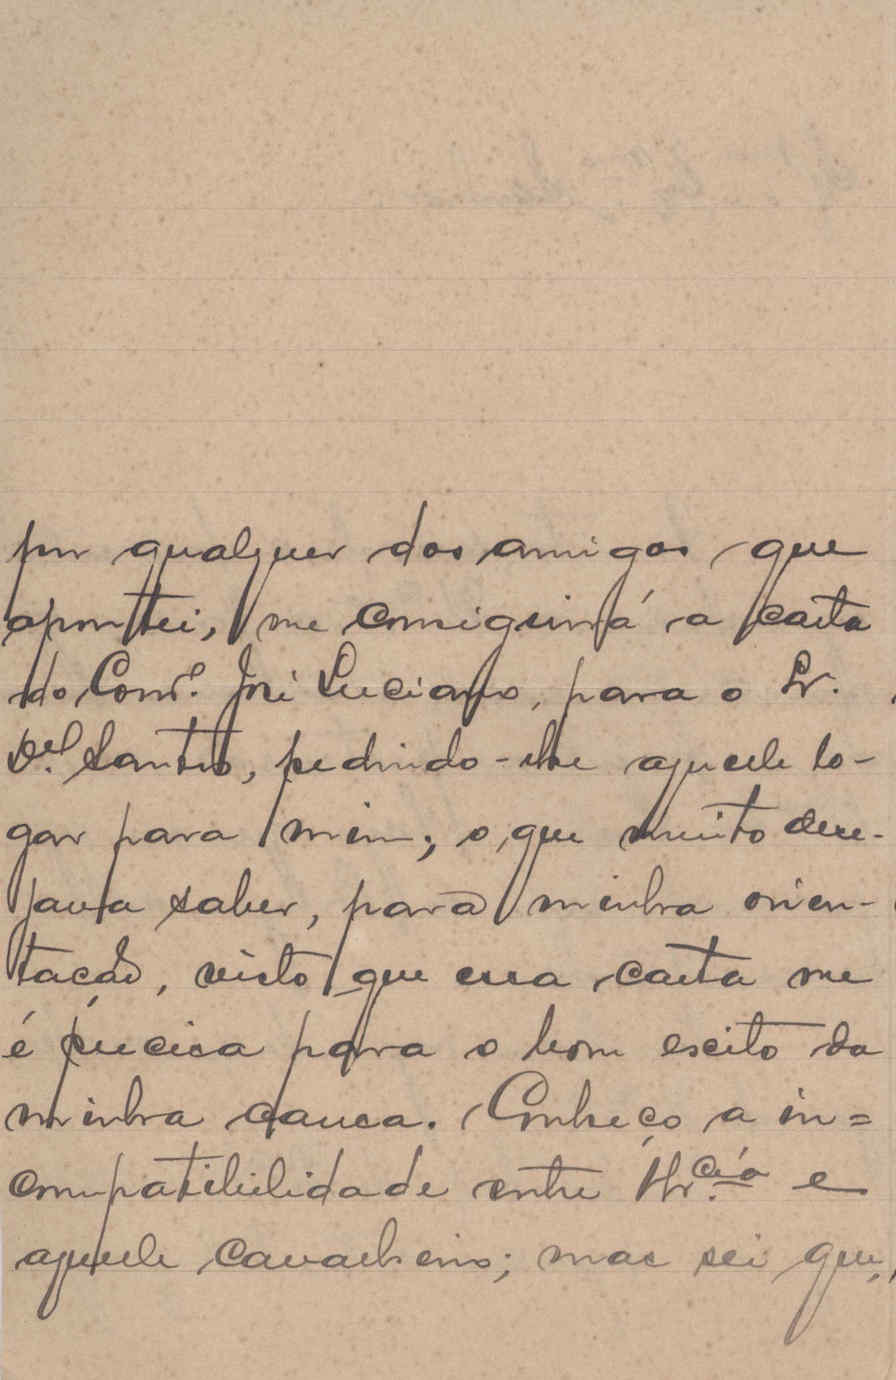 por qualquer dos amigos que
apontei, me conseguirá a carta
do Cons.º José Luciano, para o Sr.
D.el Santos, pedindo-lhe aquele lo-
gar para mim; o que muito dese-
java saber, para minha orien-
tação, visto que essa carta me
é precisa para o bom exito da
minha causa. Conheço a in=
compatibilidade entre V.cia e
aquele cavalheiro; mas sei que,